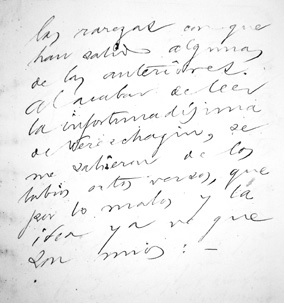 las rarezas con que
han salido algunas
de las anteriores.
Al acabar de leer
la infortunadísima
de Vereschagin, se
me salieron de los
labios estos versos, que
por lo malos y la
idea ya ve que
son mios: —